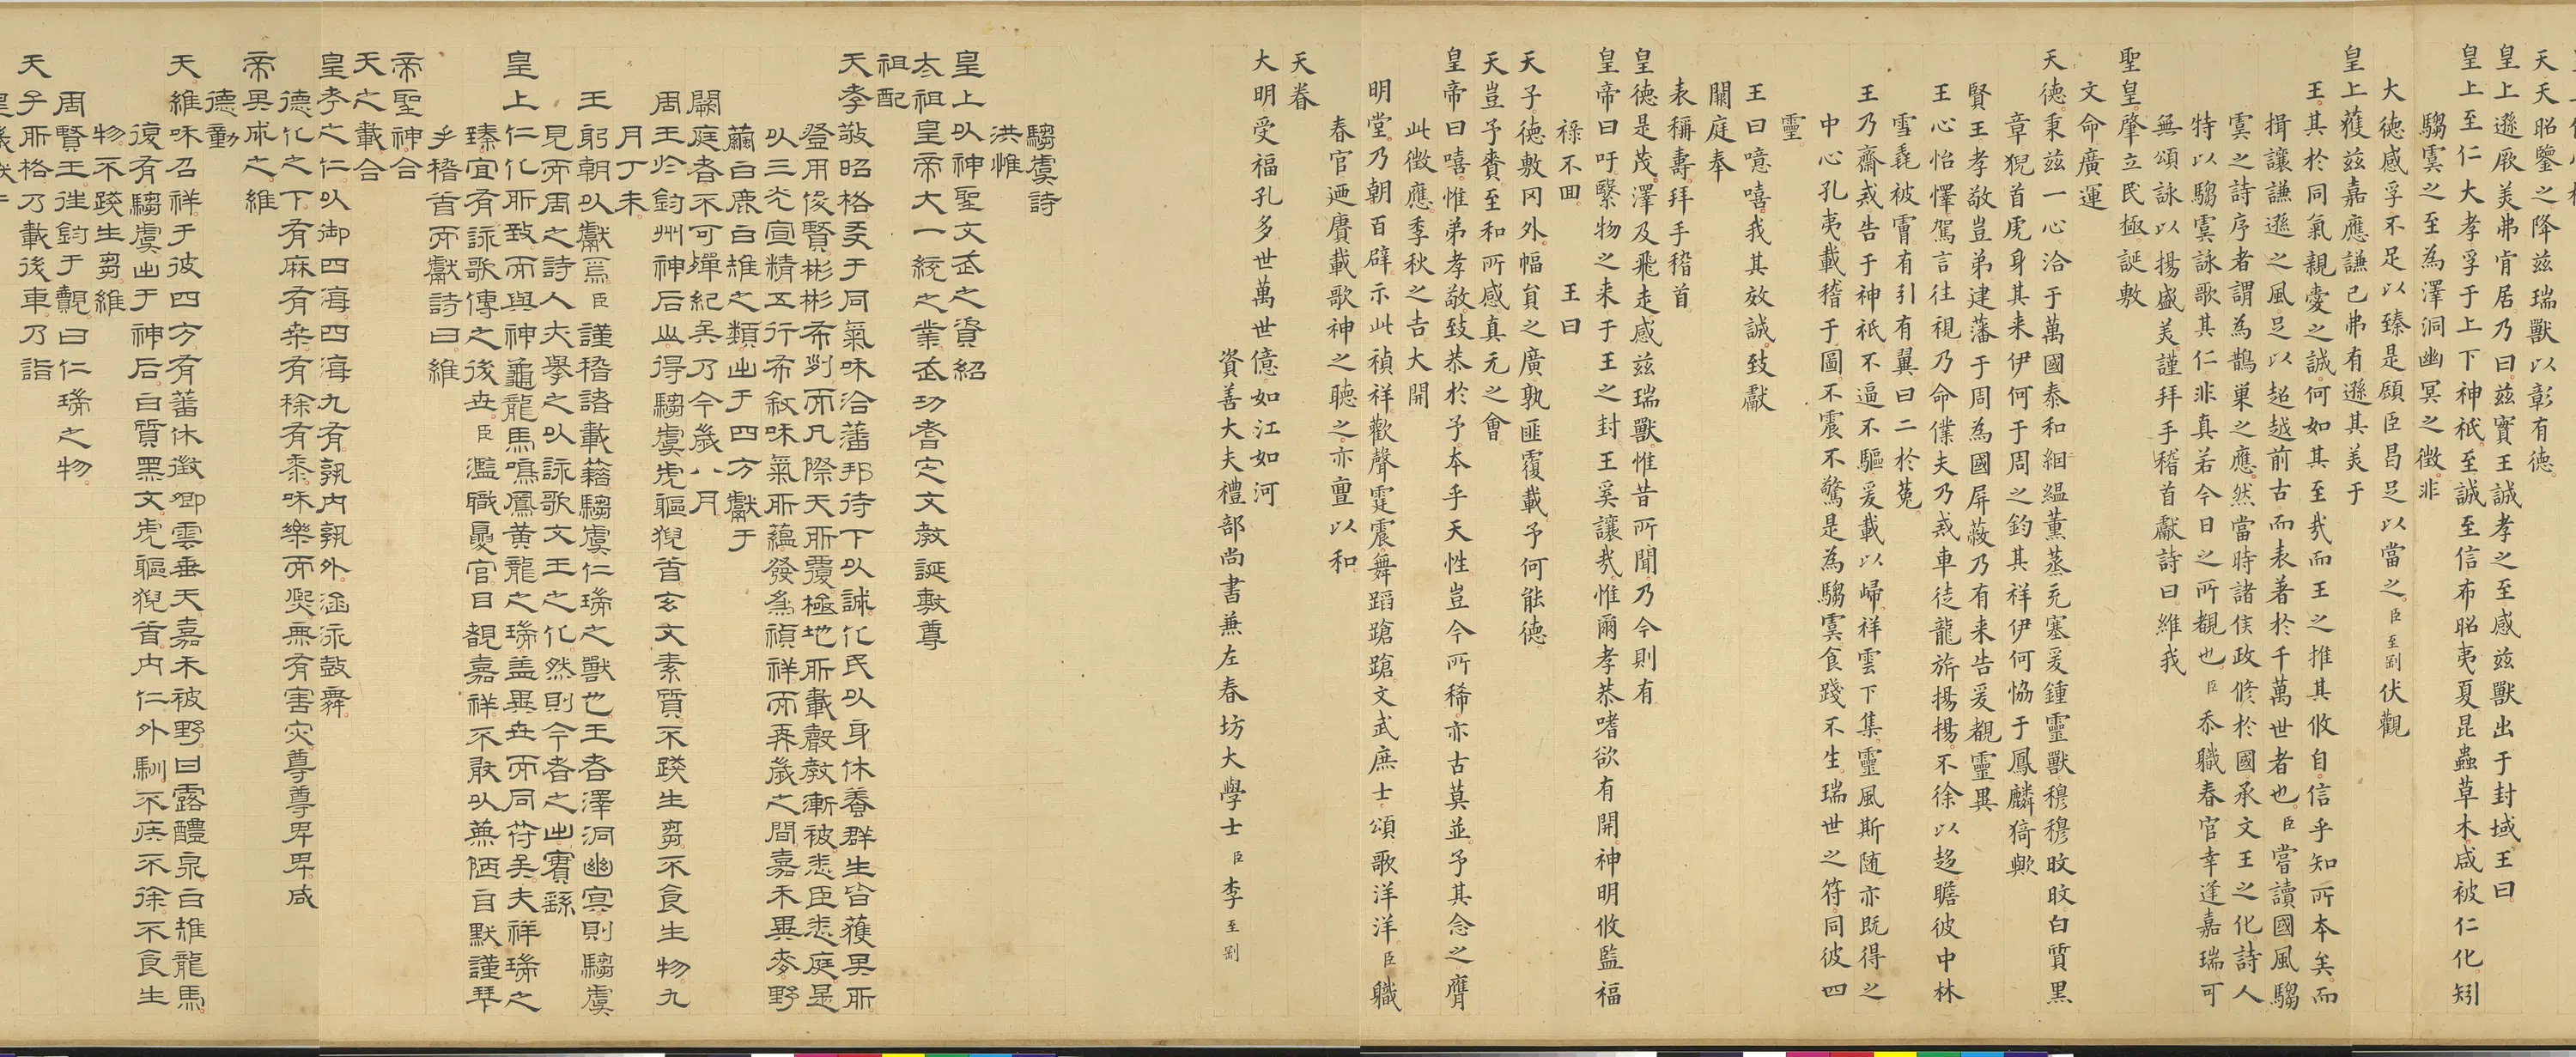 天天昭鑒之降茲瑞獸以彰有德
皇上遜厥美弗肯居乃曰茲實王誠孝之至感茲獸出于封域王曰
皇上至仁大孝孚于上下神祇至誠至信布昭夷夏昆蟲草木咸被仁化矧
騶虞之至為澤洞幽冥之徵非
大德感孚不足以臻是頋臣昌足以當之臣至剛伏觀
皇上獲茲嘉應謙己弗有遜其美于
王其於同氣親愛之誠何如其至㢤而王之推其攸自信乎知所本矣而
揖讓謙遜之風足以超越前古而表著於千萬世者也臣嘗讀國風騶
虞之詩序者謂為鵲巢之應然當時諸侯政脩於國承文王之化詩人
特以騶虞詠歌其仁非真若今日之所覩也臣忝職春官幸逢嘉瑞可
無頌詠以揚盛美謹拜手稽首獻詩曰維我
聖皇肇立民極誕敷
文命廣運
天德秉茲一心洽于萬國泰和絪縕薰蒸充塞爰鍾靈獸穆穆旼旼白質黑
章猊首虎身其来伊何于周之鈞其祥伊何恊于鳳麟猗歟
賢王孝敬豈弟建藩于周為國屏蔽乃有来告爰覩靈異
王心怡懌駕言往視乃命僕夫乃戒車徒龍旂揚揚不徐以趍瞻彼中林
雪毳被霄有引有翼曰二於菟
王乃齋戒告于神祇不逼不驅爰載以歸祥雲下集靈風斯随亦既得之
中心孔夷載稽于圖不震不驚是為騶虞食踐不生瑞世之符同彼四
靈
王曰噫嘻我其效誠致獻
闕庭奉
表稱壽拜手稽首
皇德是茂澤及飛走感茲瑞獸惟昔所聞乃今則有
皇帝曰吁繄物之来于王之封王奚讓㢤惟爾孝恭嗜欲有開神明攸監福
祿不回　　王曰
天子德敷冈外幅員之廣孰匪覆載予何能德
天豈予賚至和所感真元之會
皇帝曰嘻惟弟孝敬致恭於予本乎天性豈今所稀亦古莫並予其念之膺
此徵應季秋之吉大開
明堂乃朝百辟示此禎祥歡聲霆震舞蹈蹌蹌文武庶士頌歌洋洋臣職
春官廼賡載歌神之聽之亦亶以和
天眷
大明受福孔多世萬世億如江如河
資善大夫禮部尚書兼左春坊大學士臣李至剛
騶虞詩
洪惟
皇上以神聖文武之資紹
太祖皇帝大一統之業武功耆定文教誕敷尊
祖配
天孝敬昭格爰于同氣咊洽藩邦待下以誠化民以身休養群生皆獲其所
登用俊賢彬彬布列而凡際天所覆極地所載聲教漸被悉臣悉庭是
以三光宣精五行布敘咊氣所蘊發為禎祥而再歲之間嘉禾異麥野
繭白鹿白雉之類出于四方獻于
闕庭者不可殫紀矣乃今歲八月
月丁未
周王於鈞州神后山得騶虞虎軀猊首玄文素質不踐生芻不食生物九
王躬朝以獻焉臣謹稽諸載籍騶虞仁瑞之獸也王者澤洞幽冥則騶虞
見而周之詩人夫擧之以詠歌文王之化然則今者之出實繇
皇上仁化所致而與神龜龍馬鳴鳳黃龍之瑞蓋異世而同符矣夫祥瑞之
臻宜有詠歌傳之後世臣濫職憂官目覩嘉祥不敢以蕪陋自默謹拜
手稽首而獻詩曰維
帝聖神合
天之載合
皇孝之仁以御四海四海九有孰內孰外涵泳鼓舞
德化之下有麻有桒有稌有黍咊樂而熙無有害灾尊尊卑卑咸
帝其成之維
德動
天維咊召祥于彼四方有蕃休徵卿雲垂天嘉禾被野甘露醴泉白雉龍馬
復有騶虞出于神后白質黑文虎軀猊首内仁外馴不疾不徐不食生
物不踐生芻維
周賢王徃鈞于觀曰仁瑞之物
天子所格乃載後車乃詣